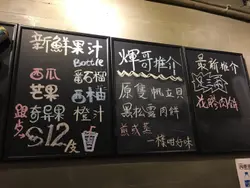 新鮮果汁
Bottle
西瓜 蕃石榴
芒果 西柚
奇異果 橙汁
$12/支
輝哥推介
原隻帆立貝
黑松露肉件
一條咁好味
最新推介
花膠肉件